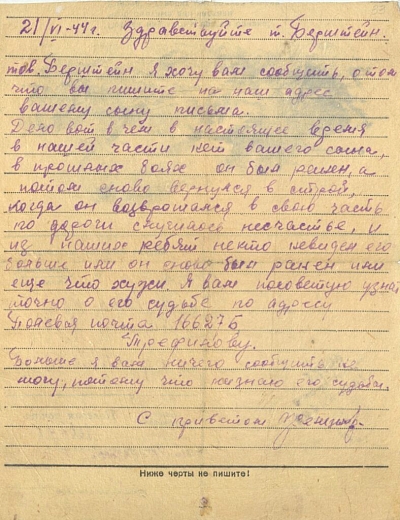 21/VI-44г. Здравствуйте т. Берштейн.
тов. Берштейн я хочу вам сообщить, о том
что вы пишите на наш адрес
вашему сыну письма.
Дело вот в чем в настоящее время
в нашей части нет вашего сына,
в прошлых боях он был ранен, а
потом снова вернулся в строй,
когда он возвращался в свою часть
по дороги случилось несчастье, и
из наших ребят некто невидел его
больше или он снова был ранен или
еще что хужи. Я вам посоветую узнат
точно о его судьбе по адрессу
Полевая почта 16627Б
Трефилову.
Больше я вам ничего сообщить не
могу, потому что незнаю его судьбы.
С приветом
Ниже черты не пишите!